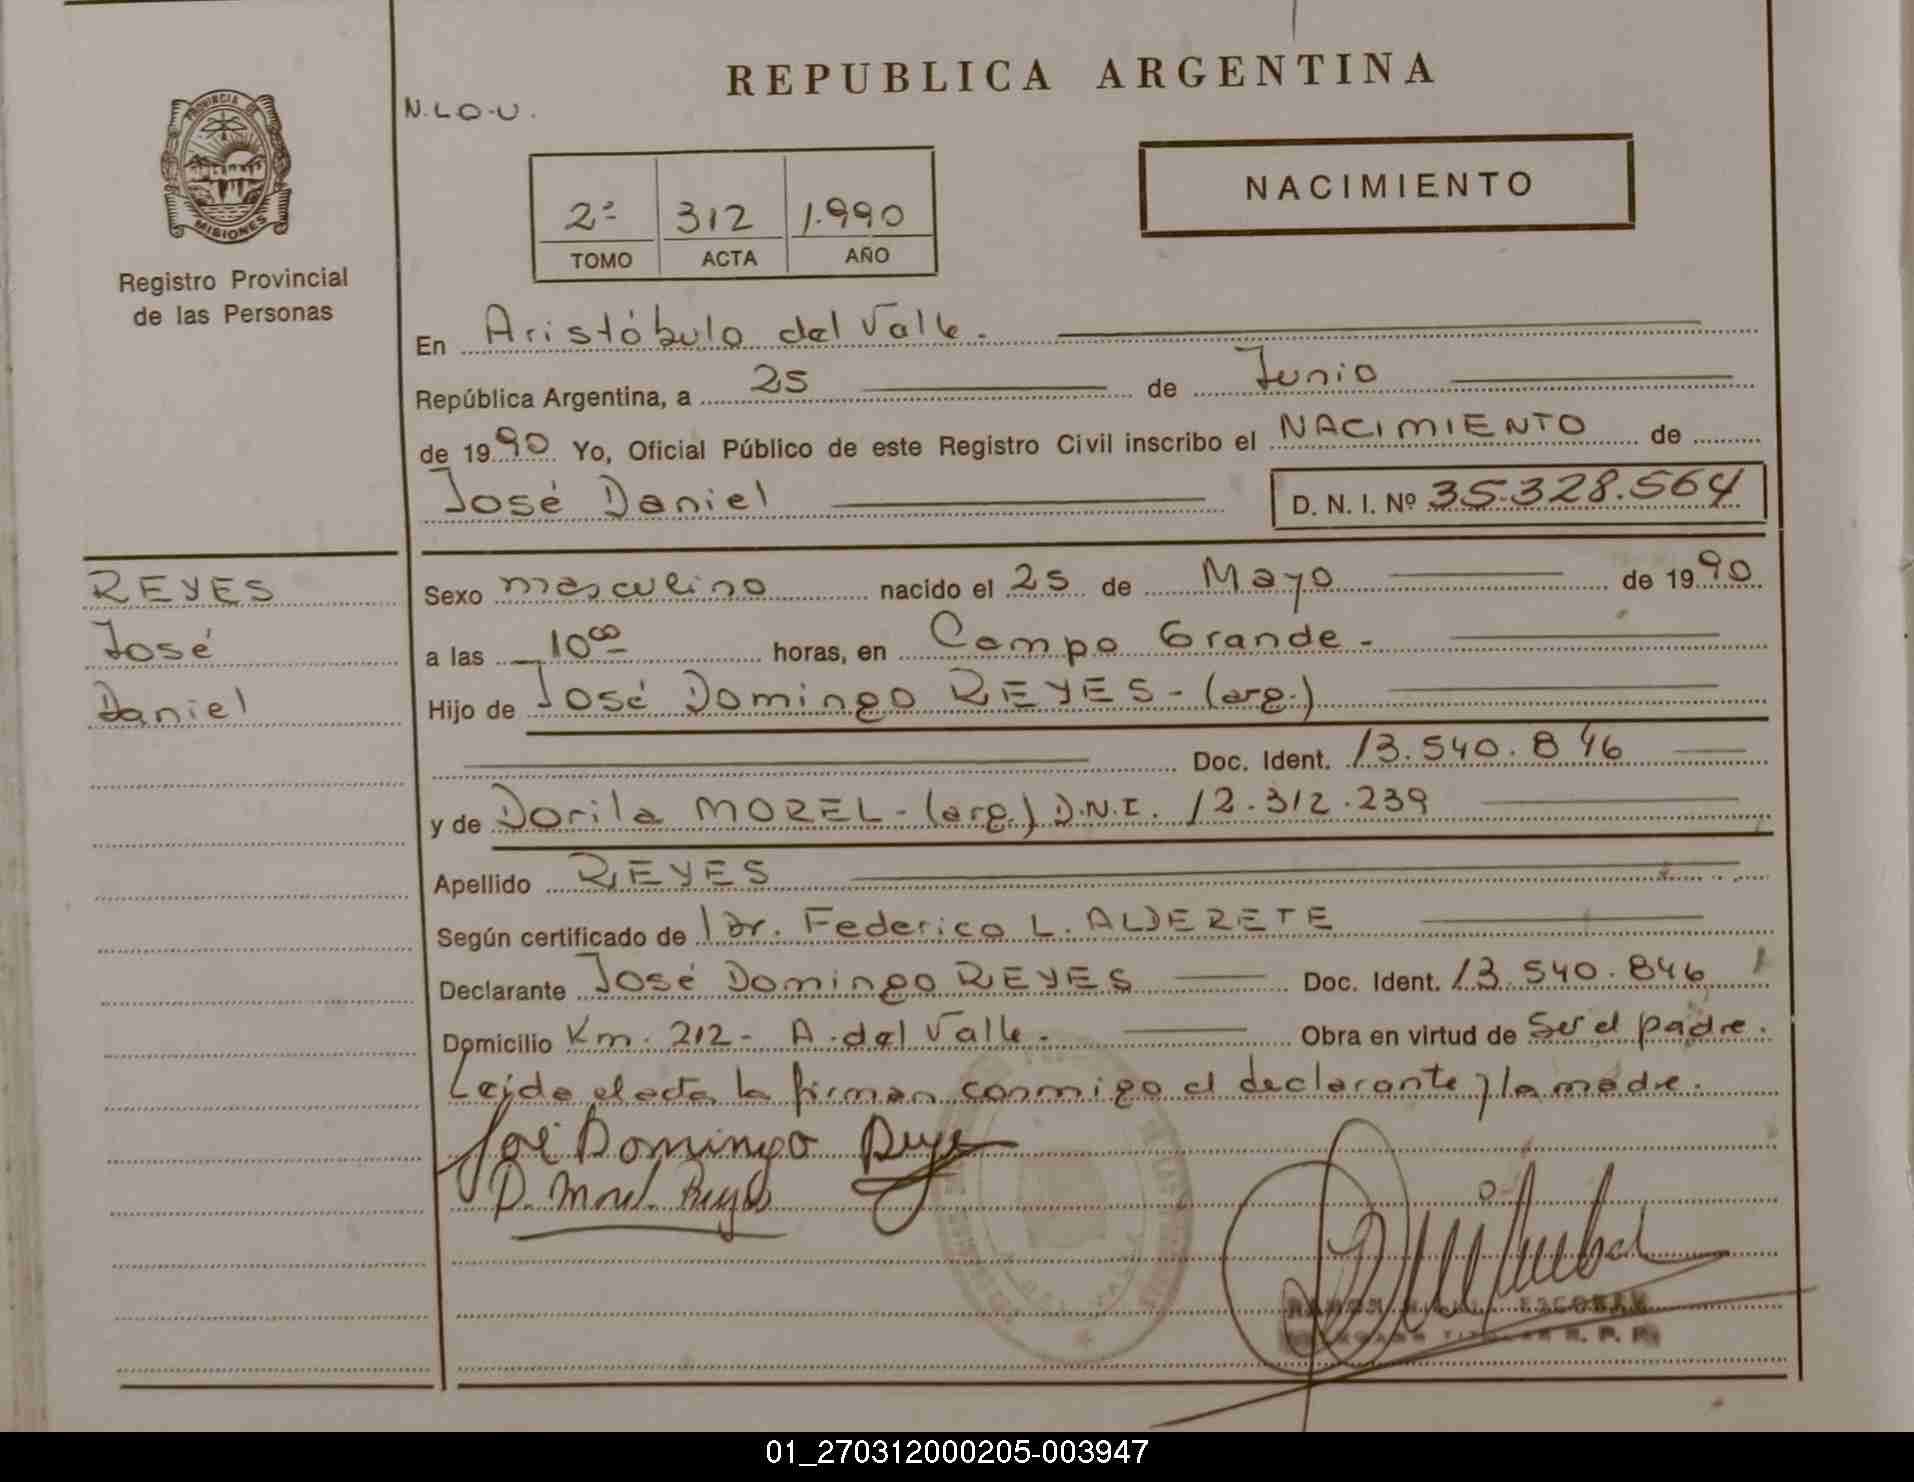 REPUBLICA ARGENTINA
N.L.O-U.
PROVINCIA DE
MISIONES
Registro Provincial
de las Personas
2º 312 1.990
TOMO ACTA AÑO
NACIMIENTO
En Aristóbulo del Valle.
República Argentina, a 25 de Junio
de 1990 Yo, Oficial Público de este Registro Civil inscribo el NACIMIENTO de
José Daniel D. N. I. Nº 35.328.564
REYES
José
Daniel
Sexo masculino nacido el 25 de Mayo de 1990
a las 10⁰⁰ horas, en Campo Grande-
Hijo de José Domingo REYES-(arg.)
Doc. Ident. 13.540.846
y de Dorila MOREL-(arg.) D.N.I. 12.312.239
Apellido REYES
Según certificado de Dr. Federico L. ALDERETE
Declarante José Domingo REYES Doc. Ident. 13.540.846
Domicilio Km. 212- A. del Valle. Obra en virtud de Ser el padre.
Leida el acta la firman conmigo el declarante y la madre.
José Domingo Reye
D. Morel Reyes
ESCOBAR
TITULAR R. P. P.
01_270312000205-003947